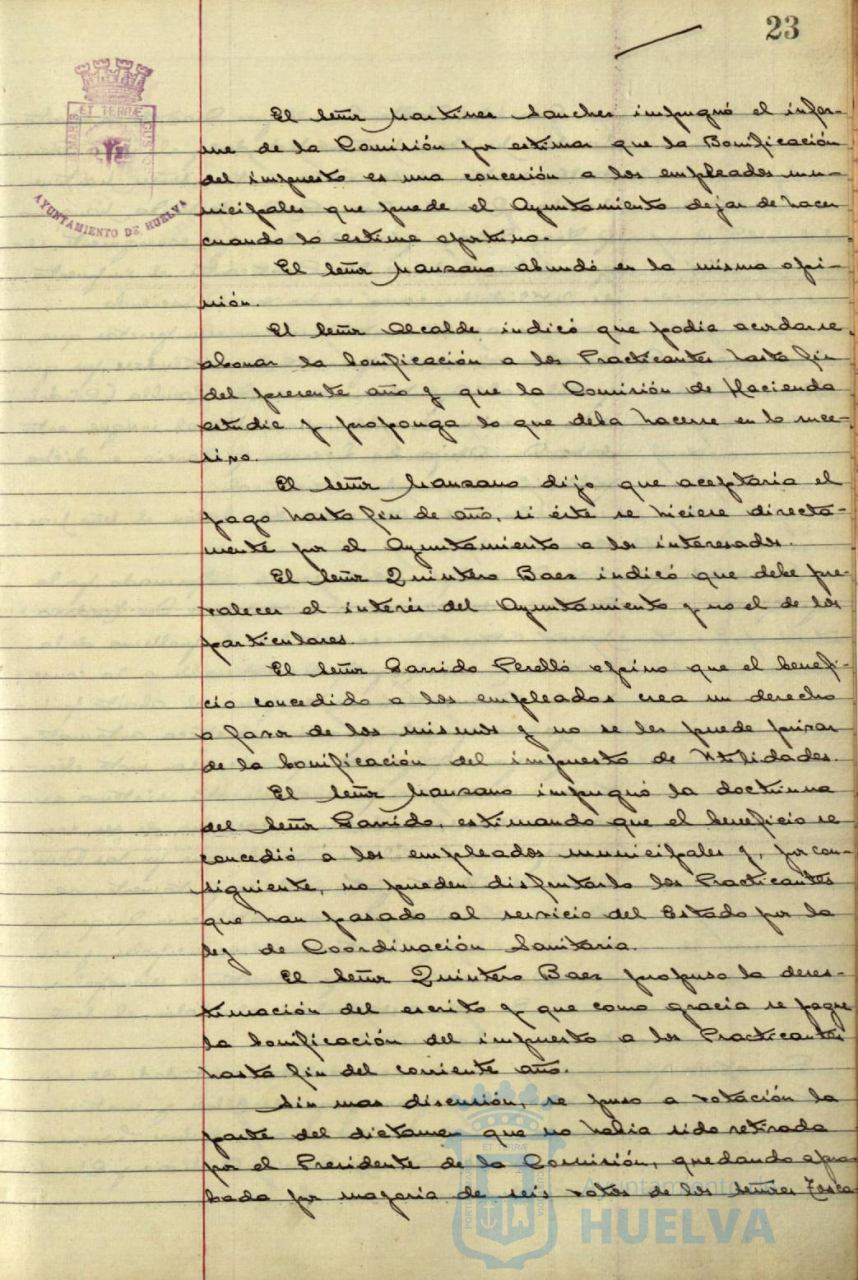 23
ET TERRAE
MARIS
CUSTO
AYUNTAMIENTO DE HUELVA
El señor Martinez Sanchez impugnó el infor-
me de la Comisión por estimar que la Bonificación
del impuesto es una concesión a los empleados mu-
nicipales que puede el Ayuntamiento dejar de hacer
cuando lo estime oportuno.
El señor Manzano abundó en la misma opi-
nión.
El señor Alcalde indicó que podía acordarse
abonar la bonificación a los Practicantes hasta fin
del presente año y que la Comisión de Hacienda
estudie y proponga lo que deba hacerse en lo suce-
sivo.
El señor Manzano dijo que aceptaría el
pago hasta fin de año, si éste se hiciese directa-
mente por el Ayuntamiento a los interesados.
El señor Quintero Baez indicó que debe pre-
valecer el interés del Ayuntamiento y no el de los
particulares.
El señor Garrido Perelló opino que el benefi-
cio concedido a los empleados crea un derecho
a favor de los mismos y no se les puede privar
de la bonificación del impuesto de Utilidades.
El señor Manzano impugnó la doctrina
del señor Garrido, estimando que el beneficio se
concedió a los empleados municipales y, por con-
siguiente, no pueden disfrutarlo los Practicantes
que han pasado al servicio del Estado por la
ley de Coordinación Sanitaria.
El señor Quintero Baez propuso la deses-
timación del escrito y que como gracia se pague
la bonificación del impuesto a los Practicantes
hasta fin del corriente año.
Sin mas discusión, se puso a votación la
parte del dictamen que no habia sido retirada
por el Presidente de la Comisión, quedando apro-
bada por mayoria de seis votos de los señores Tosca
Ayuntamiento de
HUELVA